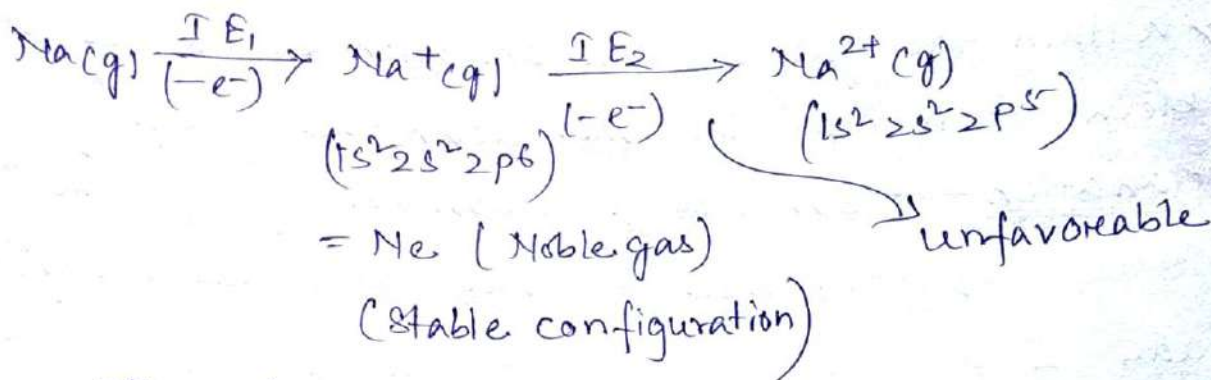 Na(g) IE₁ (-e⁻) → Na⁺(g) IE₂ (-e⁻) → Na²⁺(g)
(1s²2s²2p6) (1s²2s²2p⁵)
= Ne (Noble gas) unfavoreable
(Stable configuration)